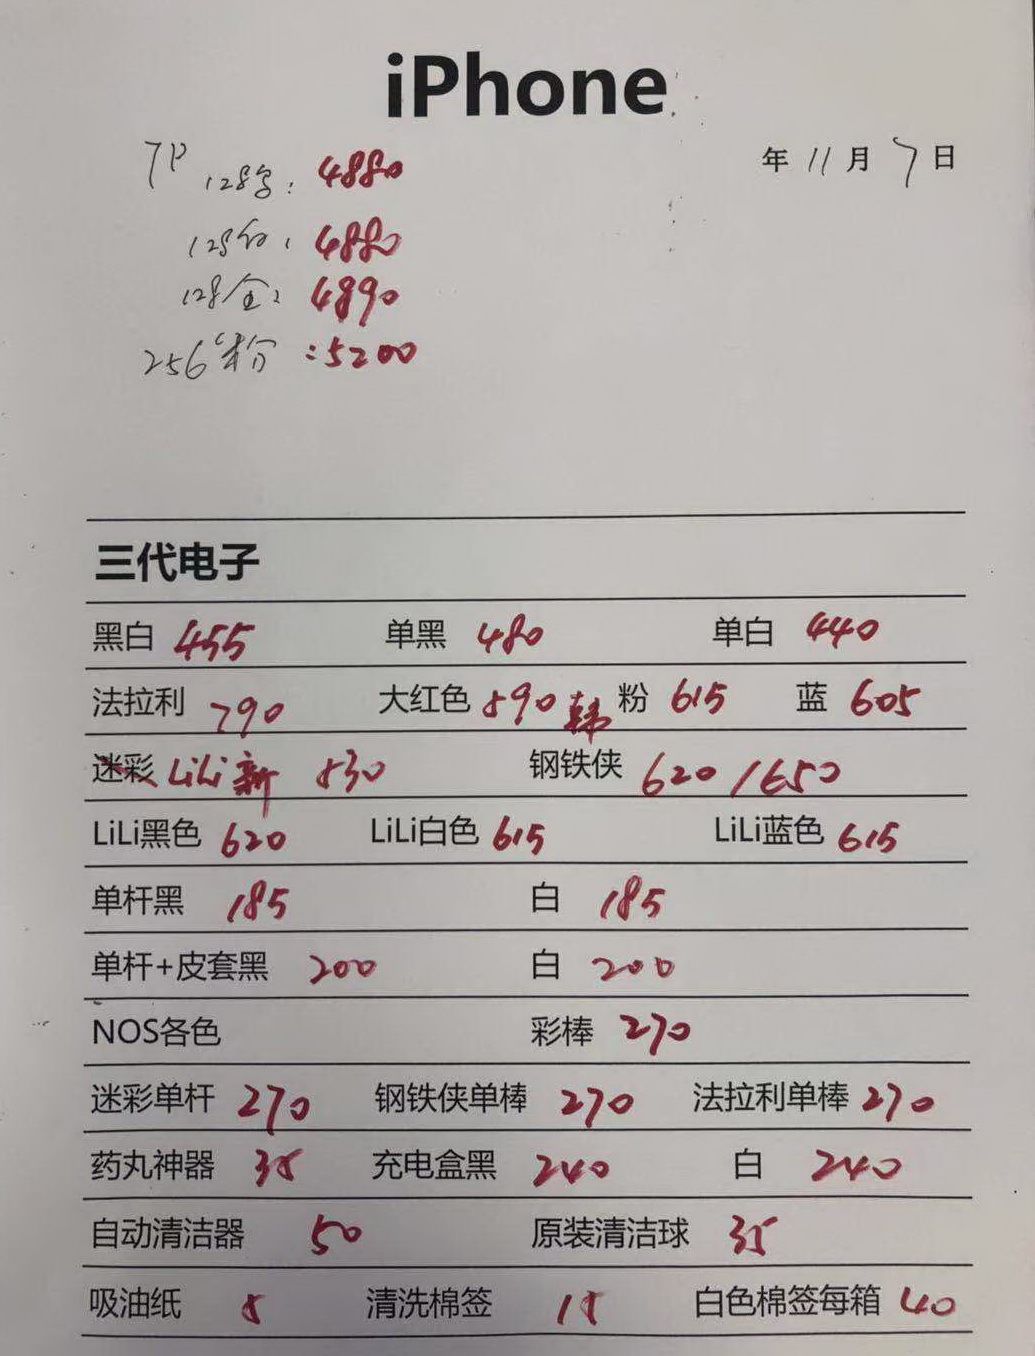 iPhone
年 11 月 7 日
7P 128黑: 4880
128白: 4880
128金: 4890
256粉: 5200
三代电子
黑白 455 单黑 480 单白 440
法拉利 790 大红色 590 韩 粉 615 蓝 605
迷彩 LiLi新 530 钢铁侠 620/650
LiLi黑色 620 LiLi白色 615 LiLi蓝色 615
单杆黑 185 白 185
单杆+皮套黑 200 白 200
NOS各色 彩棒 270
迷彩单杆 270 钢铁侠单棒 270 法拉利单棒 270
药丸神器 35 充电盒黑 240 白 240
自动清洁器 50 原装清洁球 35
吸油纸 5 清洗棉签 15 白色棉签每箱 40